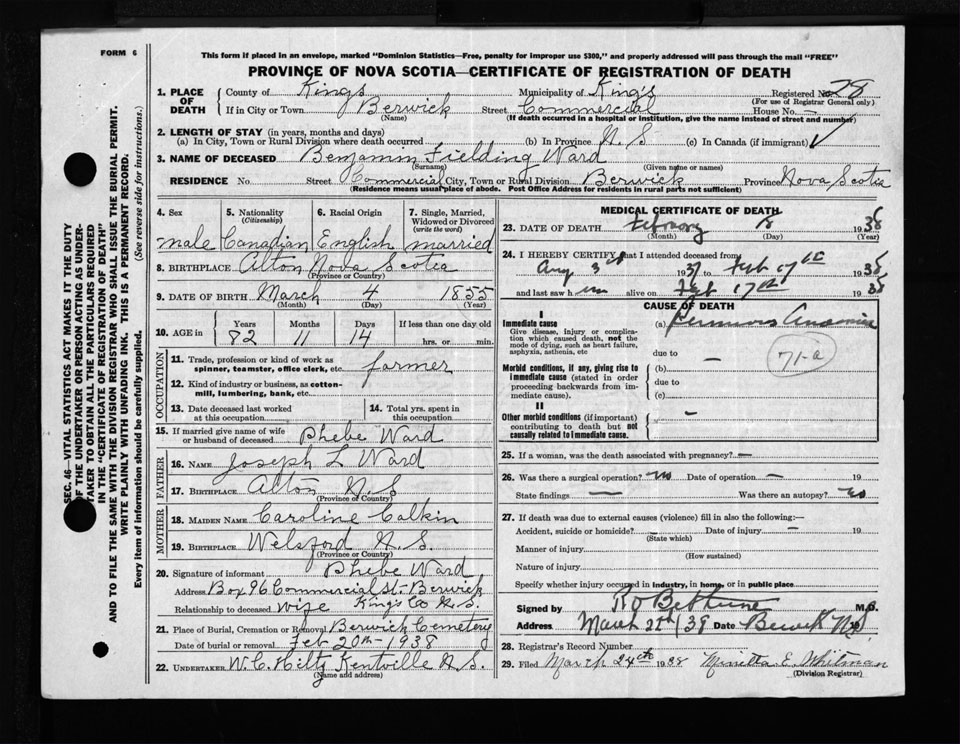 FORM 6
This form if placed in an envelope, marked "Dominion Statistics—Free, penalty for improper use $300," and properly addressed will pass through the mail "FREE"
PROVINCE OF NOVA SCOTIA—CERTIFICATE OF REGISTRATION OF DEATH
1. PLACE OF DEATH
County of Kings Municipality of King's Registered No. 28
(For use of Registrar General only)
If in City or Town Berwick Street Commercial House No. —
(Name) (If death occurred in a hospital or institution, give the name instead of street and number)
2. LENGTH OF STAY (in years, months and days)
(a) In City, Town or Rural Division where death occurred (b) In Province N. S (c) In Canada (if immigrant) ✓
3. NAME OF DECEASED Benjamin Fielding Ward
(Surname) (Given name or names)
RESIDENCE No. Street Commercial City, Town or Rural Division Berwick Province Nova Scotia
(Residence means usual place of abode. Post Office Address for residents in rural parts not sufficient)
4. Sex 5. Nationality (Citizenship) 6. Racial Origin 7. Single, Married, Widowed or Divorced (write the word)
male Canadian English married
8. BIRTHPLACE Alton Nova Scotia
(Province or Country)
9. DATE OF BIRTH March 4 1855
(Month) (Day) (Year)
10. AGE in Years Months Days If less than one day old
82 11 14 hrs. or min.
OCCUPATION
11. Trade, profession or kind of work as spinner, teamster, office clerk, etc. farmer
12. Kind of industry or business, as cotton-mill, lumbering, bank, etc.
13. Date deceased last worked at this occupation
14. Total yrs. spent in this occupation
15. If married give name of wife or husband of deceased Phebe Ward
FATHER
16. NAME Joseph L Ward
17. BIRTHPLACE Alton N. S
(Province or Country)
MOTHER
18. MAIDEN NAME Caroline Calkin
19. BIRTHPLACE Welsford N. S.
(Province or Country)
20. Signature of informant Phebe Ward
Address Box 96 Commercial St. Berwick
Relationship to deceased wife King's Co N. S.
21. Place of Burial, Cremation or Removal Berwick Cemetery
Date of burial or removal Feb 20th - 1938
22. UNDERTAKER W. C. Hiltz Kentville N. S.
(Name and address)
MEDICAL CERTIFICATE OF DEATH
23. DATE OF DEATH February 18 1938
(Month) (Day) (Year)
24. I HEREBY CERTIFY that I attended deceased from
Aug 3rd 1937 to Feb 17th 1938
and last saw him alive on Feb 17th 1938
CAUSE OF DEATH
I
Immediate cause (a) Pernicious Anaemia
Give disease, injury or complication which caused death, not the mode of dying, such as heart failure, asphyxia, asthenia, etc
due to —
71-a
Morbid conditions, if any, giving rise to immediate cause (stated in order proceeding backwards from immediate cause).
(b)
due to
(c)
II
Other morbid conditions (if important) contributing to death but not causally related to immediate cause. —
25. If a woman, was the death associated with pregnancy? —
26. Was there a surgical operation? no Date of operation — 19
State findings — Was there an autopsy? no
27. If death was due to external causes (violence) fill in also the following:—
Accident, suicide or homicide? — Date of injury — 19
(State which)
Manner of injury
(How sustained)
Nature of injury
Specify whether injury occurred in industry, in home, or in public place
Signed by R O Bethune M.D.
Address March 25th/38 Date Berwick NS
28. Registrar's Record Number
29. Filed March 24th 1938 Minetta E. Whitman
(Division Registrar)
SEC. 46—VITAL STATISTICS ACT MAKES IT THE DUTY
OF THE UNDERTAKER OR PERSON ACTING AS UNDER-
TAKER TO OBTAIN ALL THE PARTICULARS REQUIRED
IN THE "CERTIFICATE OF REGISTRATION OF DEATH"
AND TO FILE THE SAME WITH THE DIVISION REGISTRAR WHO SHALL ISSUE THE BURIAL PERMIT.
WRITE PLAINLY WITH UNFADING INK. THIS IS A PERMANENT RECORD.
Every item of information should be carefully supplied. (See reverse side for instructions.)